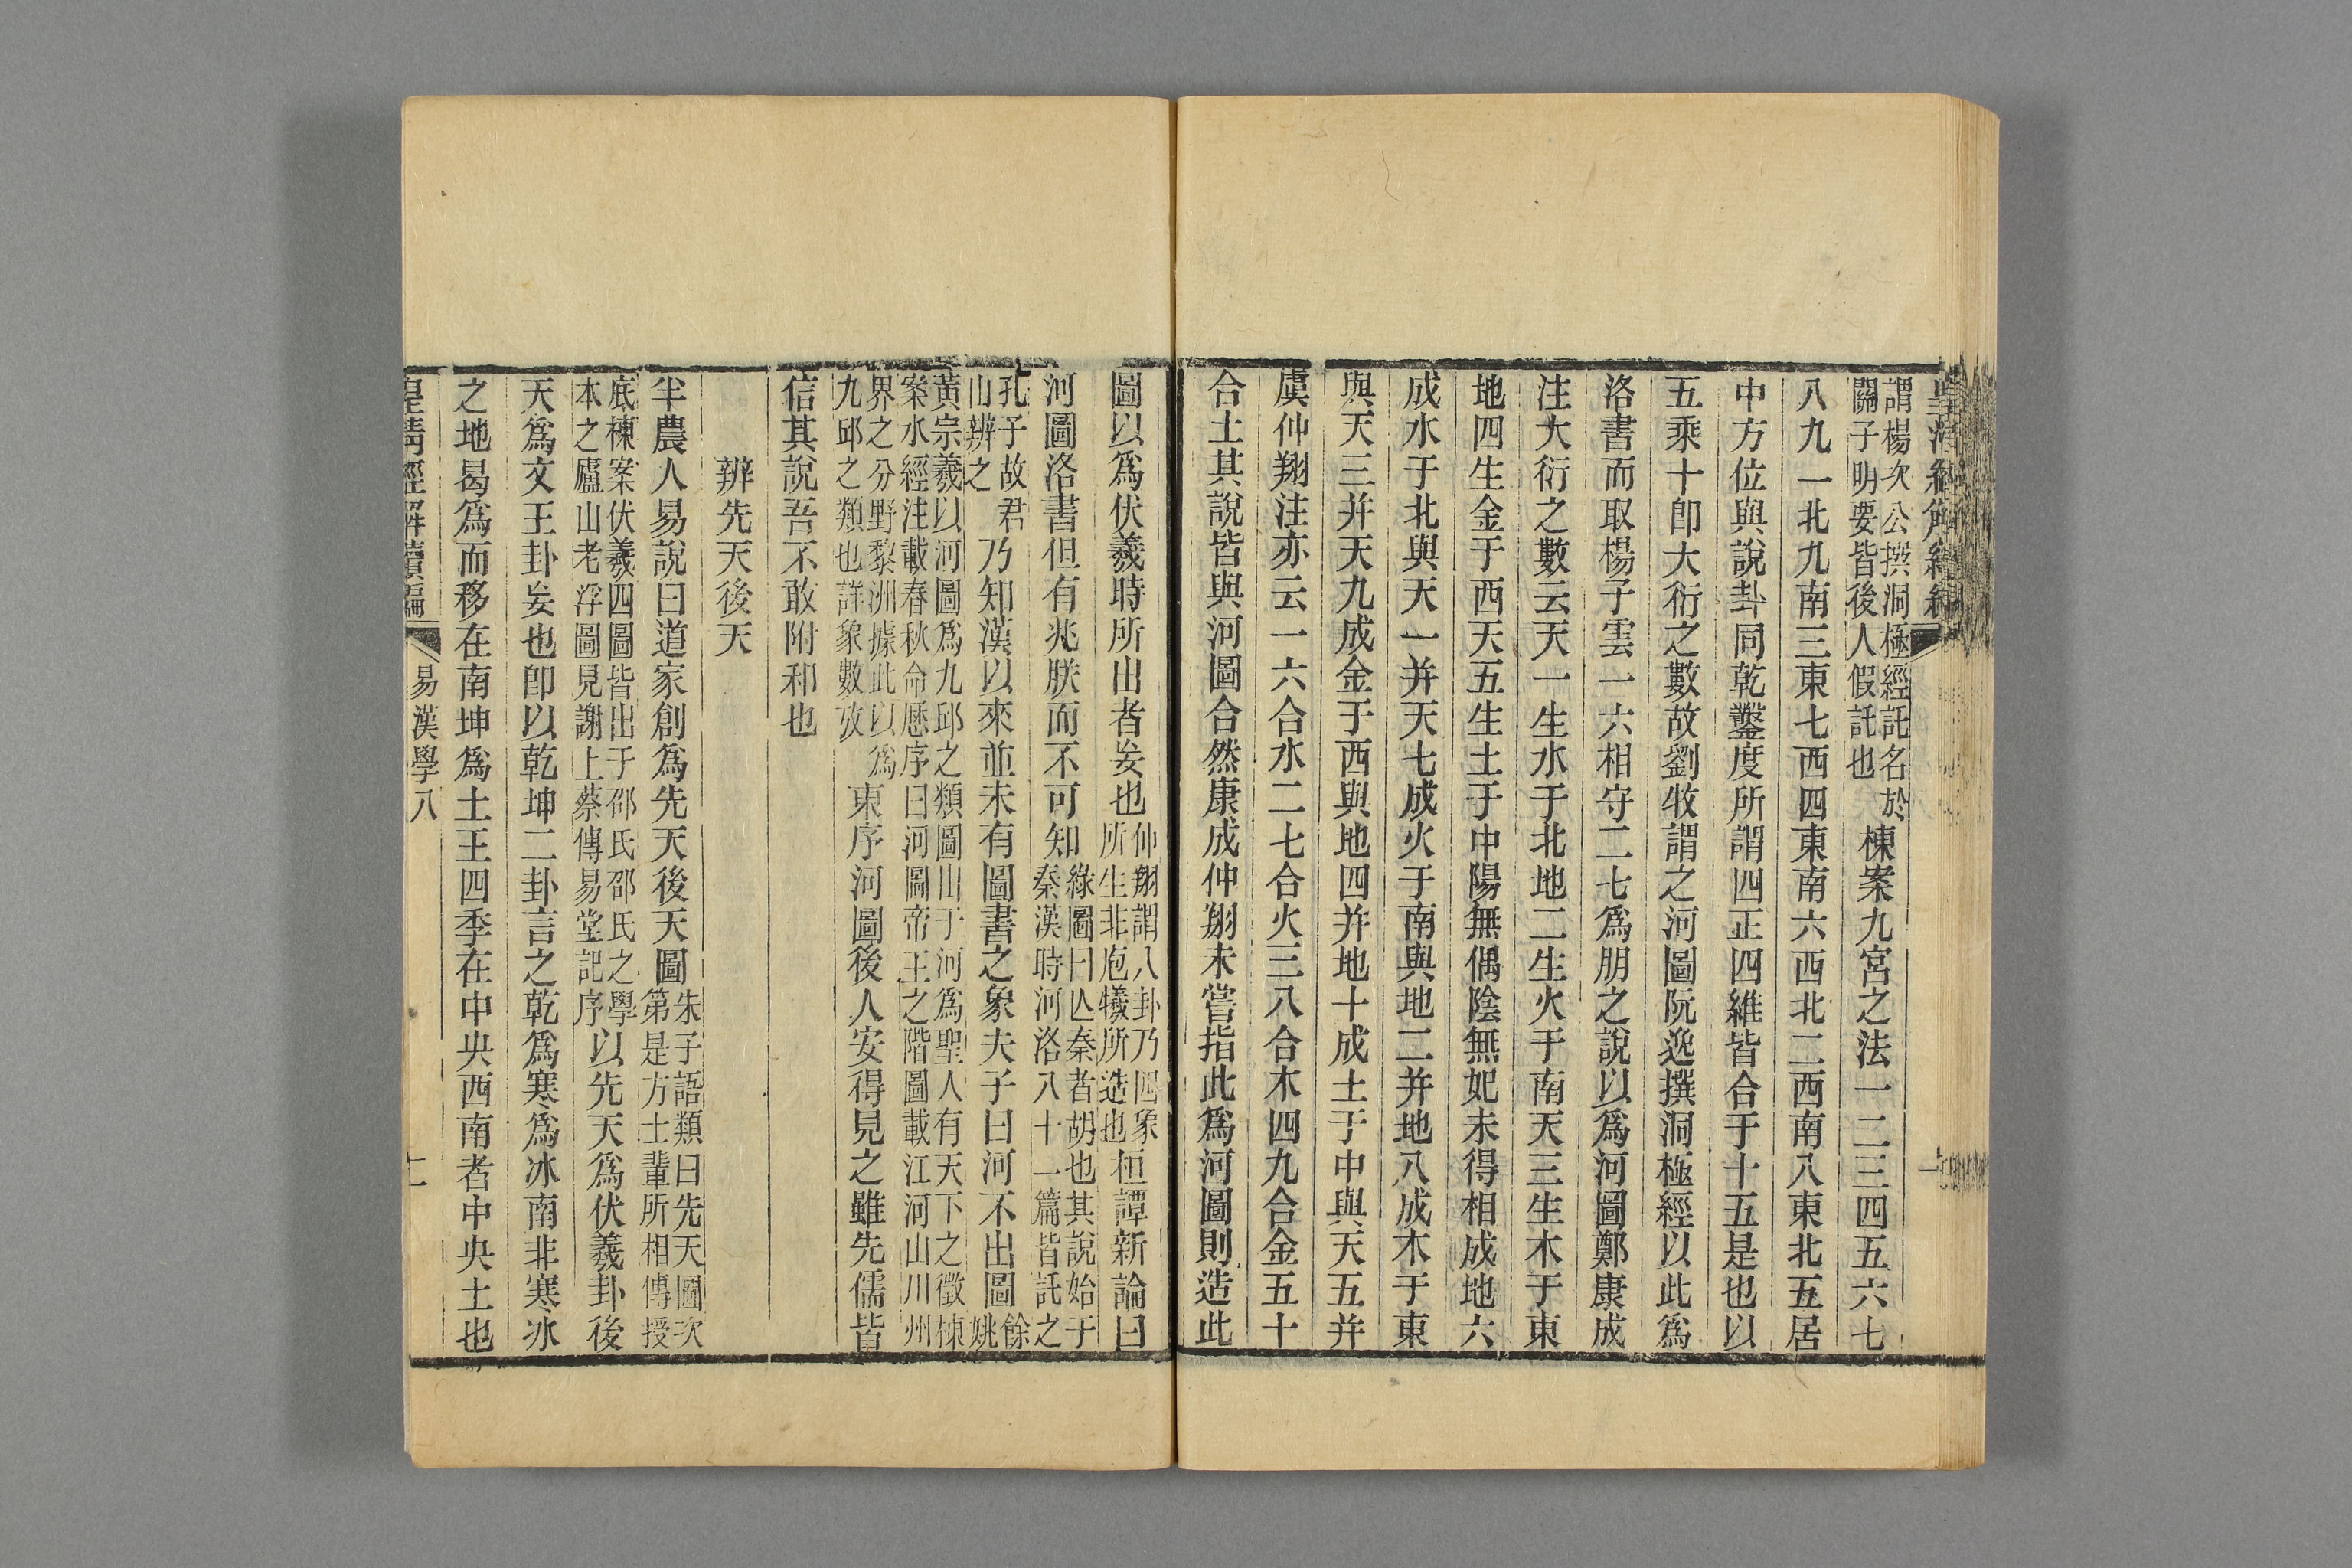 謂楊次公撰洞極經託名於
關子明要皆後人假託也
棟案九宮之法一二三四五六七
八九一北九南三東七西四東南六西北二西南八東北五居
中方位與說卦同乾鑿度所謂四正四維皆合于十五是也以
五乘十卽大衍之數故劉牧謂之河圖阮逸撰洞極經以此爲
洛書而取楊子雲一六相守二七爲朋之說以爲河圖鄭康成
注大衍之數云天一生水于北地二生火于南天三生木于東
地四生金于西天五生土于中陽無偶陰無妃未得相成地六
成水于北與天一并天七成火于南與地二并地八成木于東
與天三并天九成金于西與地四并地十成土于中與天五并
虞仲翔注亦云一六合水二七合火三八合木四九合金五十
合土其說皆與河圖合然康成仲翔未嘗指此爲河圖則造此
圖以爲伏羲時所出者妄也
仲翔謂八卦乃四象
所生非庖犧所造也
桓譚新論曰
河圖洛書但有兆朕而不可知
綠圖曰亾秦者胡也其說始于
秦漢時河洛八十一篇皆託之
孔子故君
山辨之
乃知漢以來並未有圖書之象夫子曰河不出圖
餘
姚
黃宗羲以河圖爲九邱之類圖出于河爲聖人有天下之徵棟
案水經注載春秋命厯序曰河圖帝王之階圖載江河山川州
界之分野黎洲據此以爲
九邱之類也詳象數攷
東序河圖後人安得見之雖先儒皆
信其說吾不敢附和也
辨先天後天
半農人易說曰道家創爲先天後天圖
朱子語類曰先天圖次
第是方士輩所相傳授
底棟案伏羲四圖皆出于邵氏邵氏之學
本之廬山老浮圖見謝上蔡傳易堂記序
以先天爲伏羲卦後
天爲文王卦妄也卽以乾坤二卦言之乾爲寒爲冰南非寒冰
之地曷爲而移在南坤爲土王四季在中央西南者中央土也
皇淸經解續編
易漢學八
二